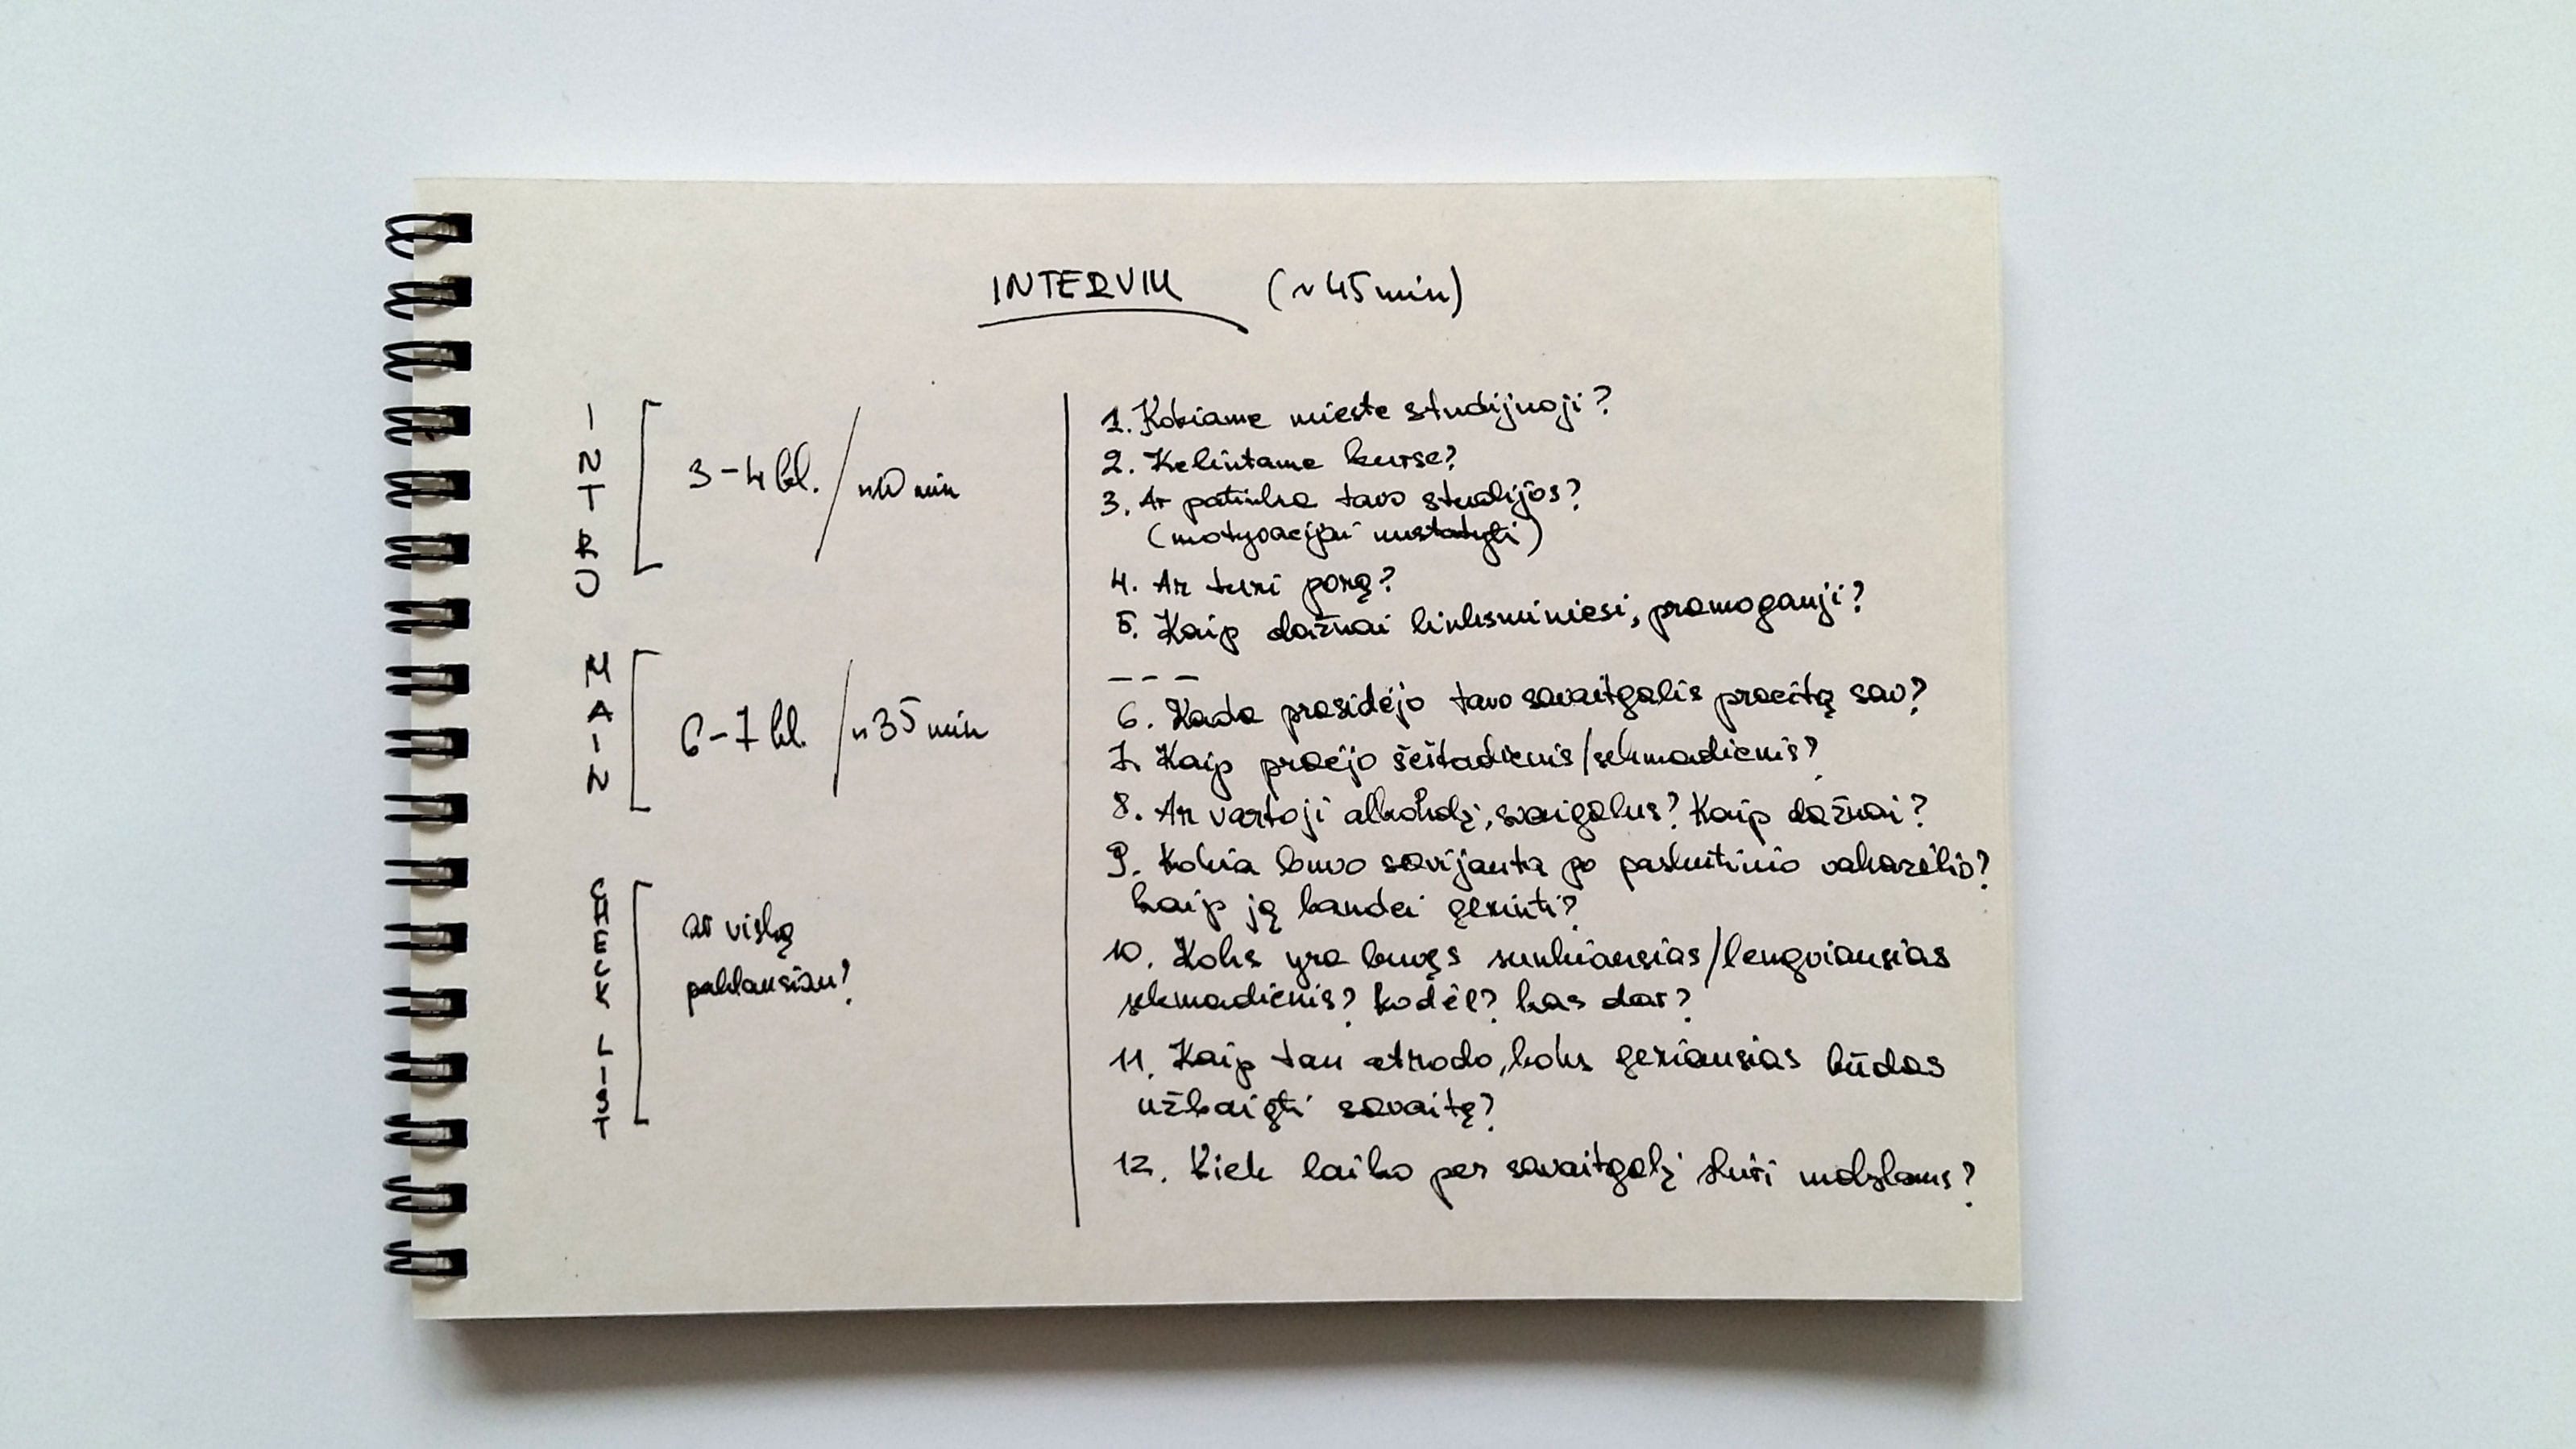 INTERVIU (~45min)
INTRO
3-4 kl. / ~10 min
MAIN
6-7 kl. / ~35 min
CHECK LIST
ar viską
paklausiau?
1. Kokiame mieste studijuoji?
2. Kelintame kurse?
3. Ar patinka tavo studijos?
(motyvacijai nustatyti)
4. Ar turi porą?
5. Kaip dažnai linksminiesi, pramogauji?
---
6. Kada prasidėjo tavo savaitgalis praeitą sav?
7. Kaip praėjo šeštadienis/sekmadienis?
8. Ar vartoji alkoholį, svaigalus? Kaip dažnai?
9. Kokia buvo savijauta po paskutinio vakarėlio?
kaip ją bandei gerinti?
10. Koks yra buvęs sunkiausias/lengviausias
sekmadienis? kodėl? kas dar?
11. Kaip tau atrodo, koks geriausias būdas
užbaigti savaitę?
12. Kiek laiko per savaitgalį skiri mokslams?